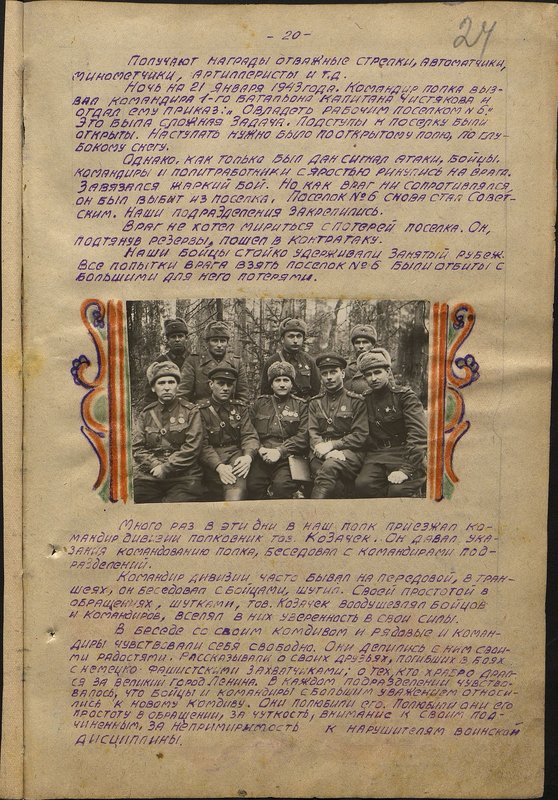 - 20 -
24
Получают награды отважные стрелки, автоматчики,
минометчики, артиллеристы и т.д.
Ночь на 21 января 1943 года. Командир полка выз-
вал командира 1-го батальона капитана Чистякова и
отдал ему приказ: „Овладеть рабочим поселком № 6."
Это была сложная задача. Подступы к поселку были
открыты. Наступать нужно было по открытому полю, по глу-
бокому снегу.
Однако, как только был дан сигнал атаки, бойцы,
командиры и политработники с яростью ринулись на врага.
Завязался жаркий бой. Но как враг ни сопротивлялся,
он был выбит из поселка. Поселок № 6 снова стал Совет-
ским. Наши подразделения закрепились.
Враг не хотел мириться с потерей поселка. Он,
подтянув резервы, пошел в контратаку.
Наши бойцы стойко удерживали занятый рубеж.
Все попытки врага взять поселок № 6 были отбиты с
большими для него потерями.
Много раз в эти дни в наш полк приезжал ко-
мандир дивизии полковник тов. Козачек. Он давал ука-
зания командованию полка, беседовал с командирами под-
разделений.
Командир дивизии часто бывал на передовой, в тран-
шеях, он беседовал с бойцами, шутил. Своей простотой в
обращениях, шутками, тов. Козачек воодушевлял бойцов
и командиров, вселял в них уверенность в свои силы.
В беседе со своим комдивом и рядовые и коман-
диры чувствовали себя свободно. Они делились с ним свои-
ми радостями. Рассказывали о своих друзьях, погибших в боях
с немецко-фашистскими захватчиками; о тех, кто храбро драл-
ся за великий город Ленина. В каждом подразделении чувство-
валось, что бойцы и командиры с большим уважением относи-
лись к новому комдиву. Они полюбили его. Полюбили они его
простоту в обращении, за чуткость, внимание к своим под-
чиненным, за непримиримость к нарушителям воинской
дисциплины.